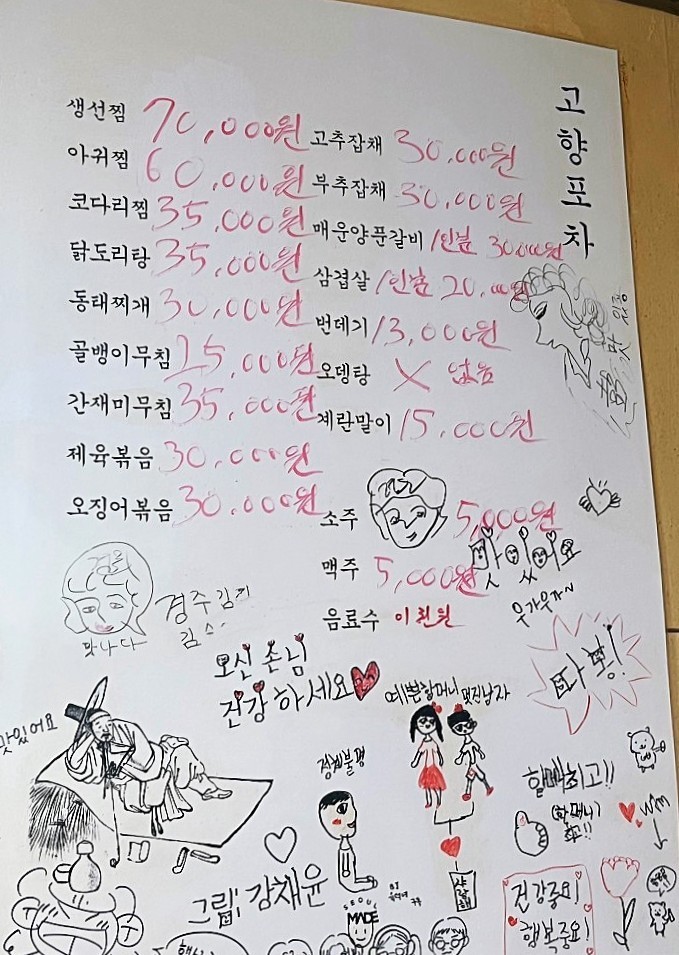 고향포차
생선찜 70,000원
아귀찜 60,000원
코다리찜 35,000원
닭도리탕 35,000원
동태찌개 30,000원
골뱅이무침 25,000원
간재미무침 35,000원
제육볶음 30,000원
오징어볶음 30,000원
고추잡채 30,000원
부추잡채 30,000원
매운양푼갈비 1인분 30,000원
삼겹살 1인분 20,000원
번데기 13,000원
오뎅탕 X 없음
계란말이 15,000원
소주 5,000원
맥주 5,000원
음료수 이천원
맛있어요
맛나다
경주
오신 손님
건강하세요
예쁜할머니 멋진남자
맛있어요
할매최고!!
(할머니)
건강좋요!
행복좋요!
그림! 강채윤
SEOUL
MADE